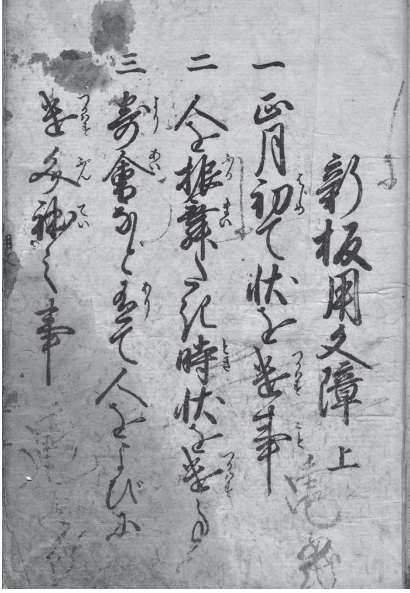 新板用文障 上
一 正月初て状を遣事
二 人を振舞たき時状を遣事
三 寄會など有て人をよびに
遣文躰之事